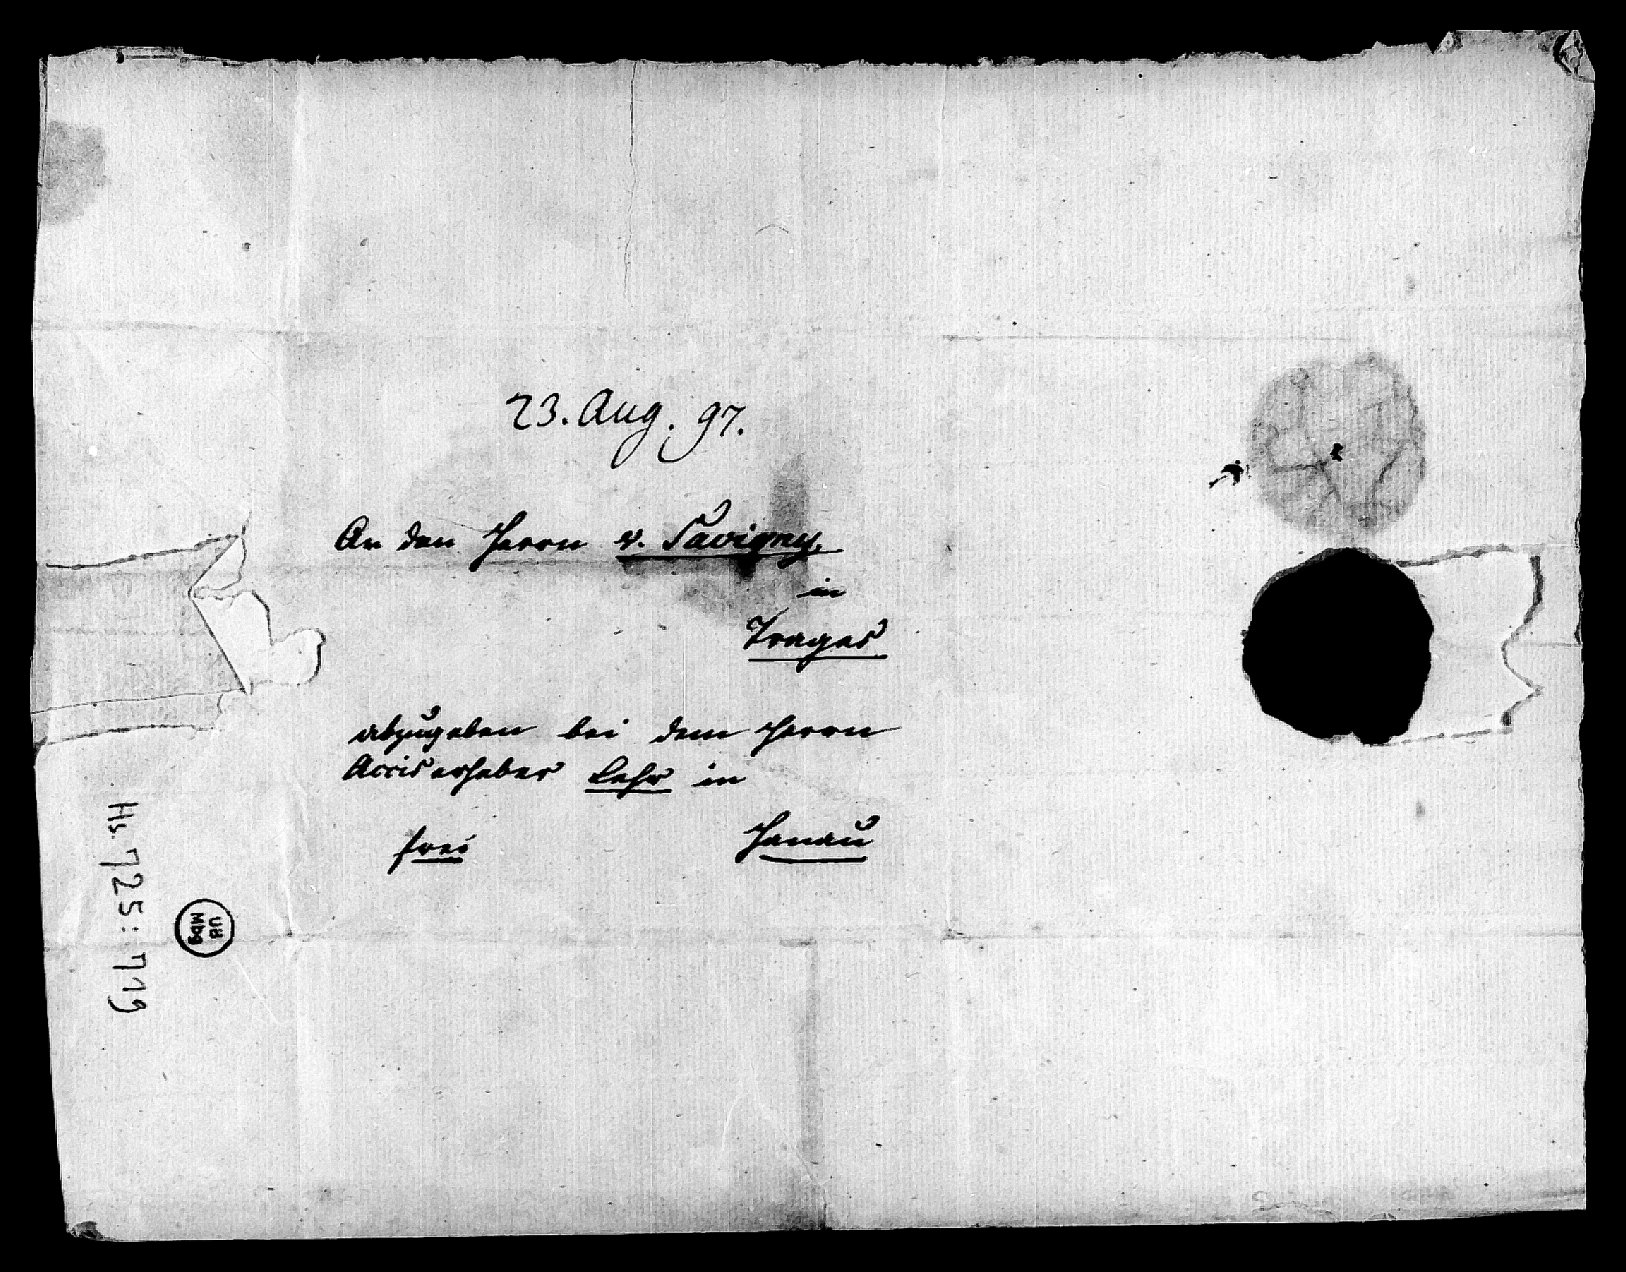 23. Aug. 97.
An den Herrn v. Savigny,
in
Trages
abzugeben bei dem Herrn
Acciserheber Lehr in
frei Hanau
Hs. 725:719
UB
Mbg